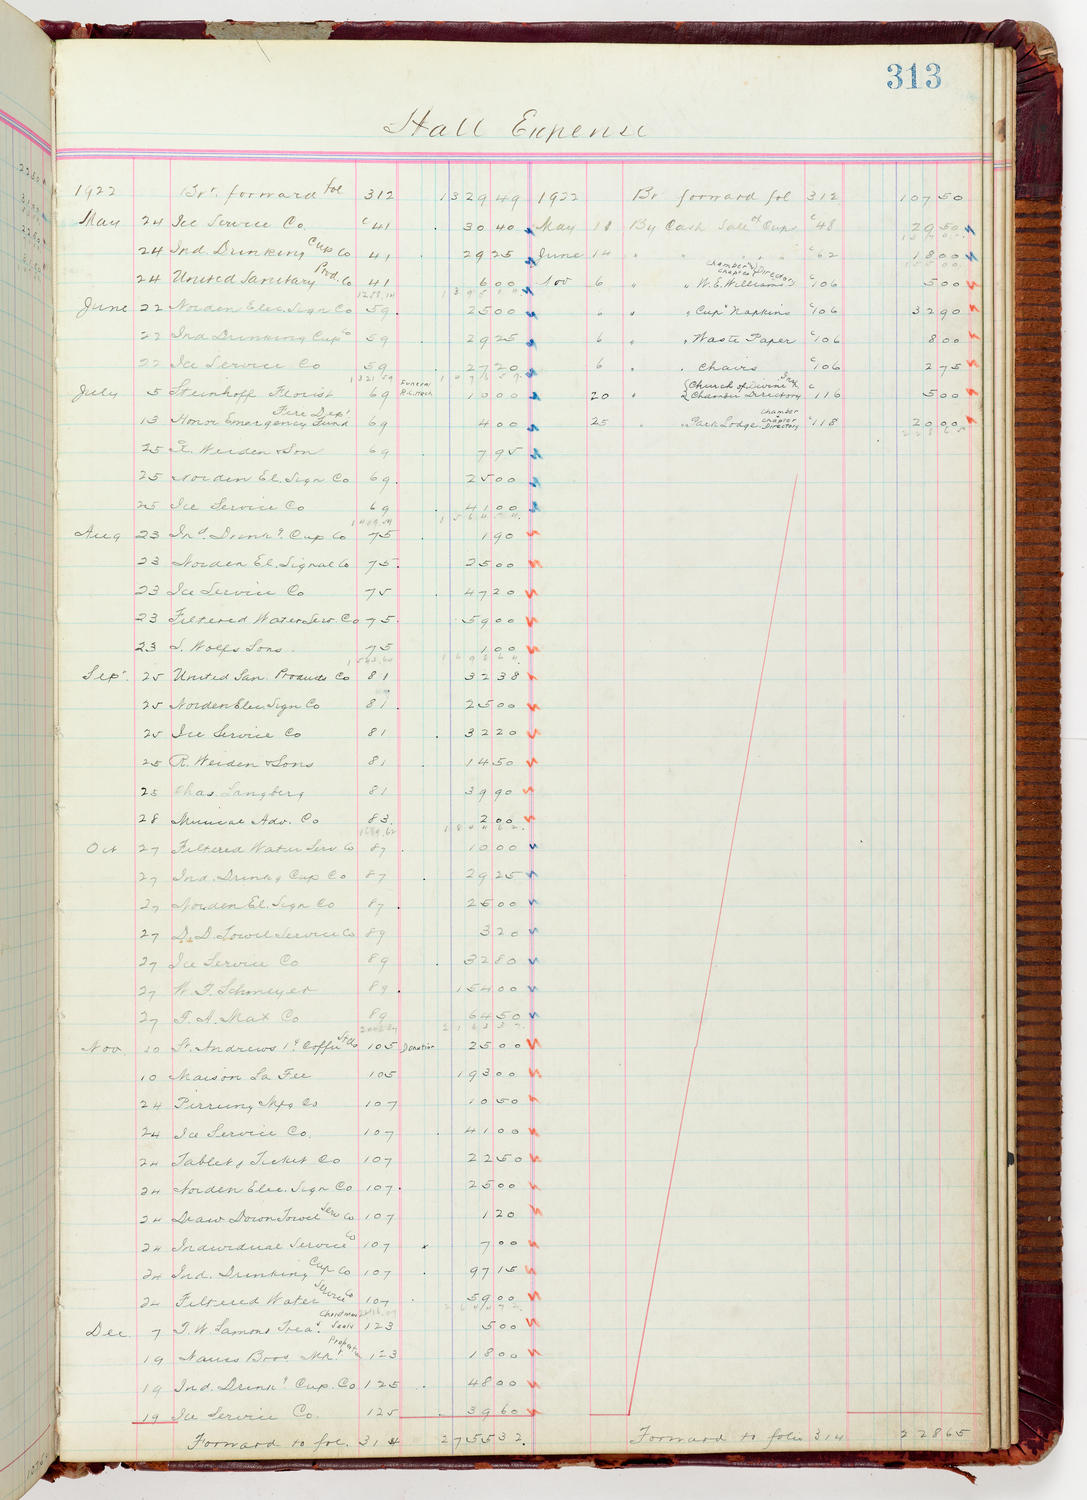 313
Hall Expense
1922 Brt. forward fol 312 1329 49
May 24 Ice Service Co. c 41 30 40
24 Ind. Drinking Cup Co 41 29 25
24 United Sanitary Prod. Co 41 6 00
June 22 Norden Elec. Sign Co 59 25 00
22 Ind Drinking Cup Co 59 29 25
22 Ice Service Co 59 27 20
July 5 Steinhoff Florist 69 Funeral 10 00
13 Honor Emergency Fund Fire Dept 69 4 00
25 R. Weiden & Son 69 7 95
25 Norden El. Sign Co 69 25 00
25 Ice Service Co 69 41 00
Aug 23 Ind. Drinkg Cup Co 75 1 90
23 Norden El. Signal Co 75 25 00
23 Ice Service Co 75 47 20
23 Filtered Water Serv. Co 75 59 00
23 S. Wolfs Sons 75 1 00
Sept. 25 United San. Products Co 81 32 38
25 Norden Elec. Sign Co 81 25 00
25 Ice Service Co 81 32 20
25 R. Weiden & Sons 81 14 50
25 Chas. Langberg 81 39 90
28 Musical Adv. Co 83 2 00
Oct 27 Filtered Water Serv Co 87 10 00
27 Ind. Drinkg Cup Co 87 29 25
27 Norden El. Sign Co 87 25 00
27 D. D. Towel Service Co 89 3 20
27 Ice Service Co 89 32 80
27 W. F. Schmeyer 89 154 00
27 F. A. Max Co 89 64 50
Nov. 10 St. Andrews 105 Donation 25 00
10 Maison La Fee 105 193 00
24 Pirrung Mfg Co 107 10 50
24 Ice Service Co. 107 41 00
24 Tablet & Ticket Co 107 22 50
24 Norden Elec. Sign Co 107 25 00
24 Draw Down Towel Serv Co 107 1 20
24 Individual Service Co 107 7 00
24 Ind. Drinking Cup Co 107 97 15
24 Filtered Water Service Co 107 59 00
Dec. 7 T. W. Lamont Treas. Christmas Seals 123 5 00
19 Naues Bros. 123 18 00
19 Ind. Drinkg Cup. Co 125 48 00
19 Ice Service Co. 125 39 60
Forward to fol. 314 2755 32
1922 Br forward fol 312 107 50
May 18 By Cash Sale of Cups c 48 29 50
June 14 " " " " c 62 18 00
Nov 6 " " W. E. Williams Chamber & chapter Directory c 106 5 00
" " " Cup Napkins c 106 32 90
6 " " Waste Paper c 106 8 00
6 " " Chairs c 106 2 75
20 " Church of Divine Chamber Directory c 116 5 00
25 " Park Lodge Chamber chapter Directory c 118 20 00
Forward to folio 314 228 65